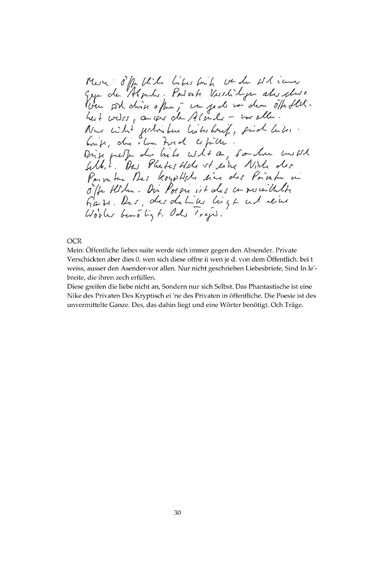 öffentlichen Liebesbriefe sich immer
gegen den Absender. Private aber
sich diese von dem Öffentlich-
keit weiss, ausser - vor allem.
Nur nicht geschriebene Liebesbriefe, sind Liebes-
briefe, die ihren Zweck erfüllen.
Diese greifen die Liebe nicht an, sondern nur sich
selbst. Das Phantastische ist eine des
Privaten Das Kryptische eine des Privaten im
Öffentlichen. Die Poesie ist das unvermittelte
Ganze. Das, das dahinter liegt und
Wörter benötigt.
OCR
Mein: Öffentliche liebes suite werde sich immer gegen den Absender. Private
Verschickten aber dies 0. wen sich diese offne ii wen je d. von dem Öffentlich. bei t
weiss, ausser den Asender-vor allen. Nur nicht geschrieben Liebesbriefe, Sind In le'-
breite, die ihren zech erfüllen.
Diese greifen die liebe nicht an, Sondern nur sich Selbst. Das Phantastische ist eine
Nike des Privaten Des Kryptisch ei 'ne des Privaten in öffentliche. Die Poesie ist des
unvermittelte Ganze. Des, das dahin liegt und eine Wörter benötigt. Och Träge.
30